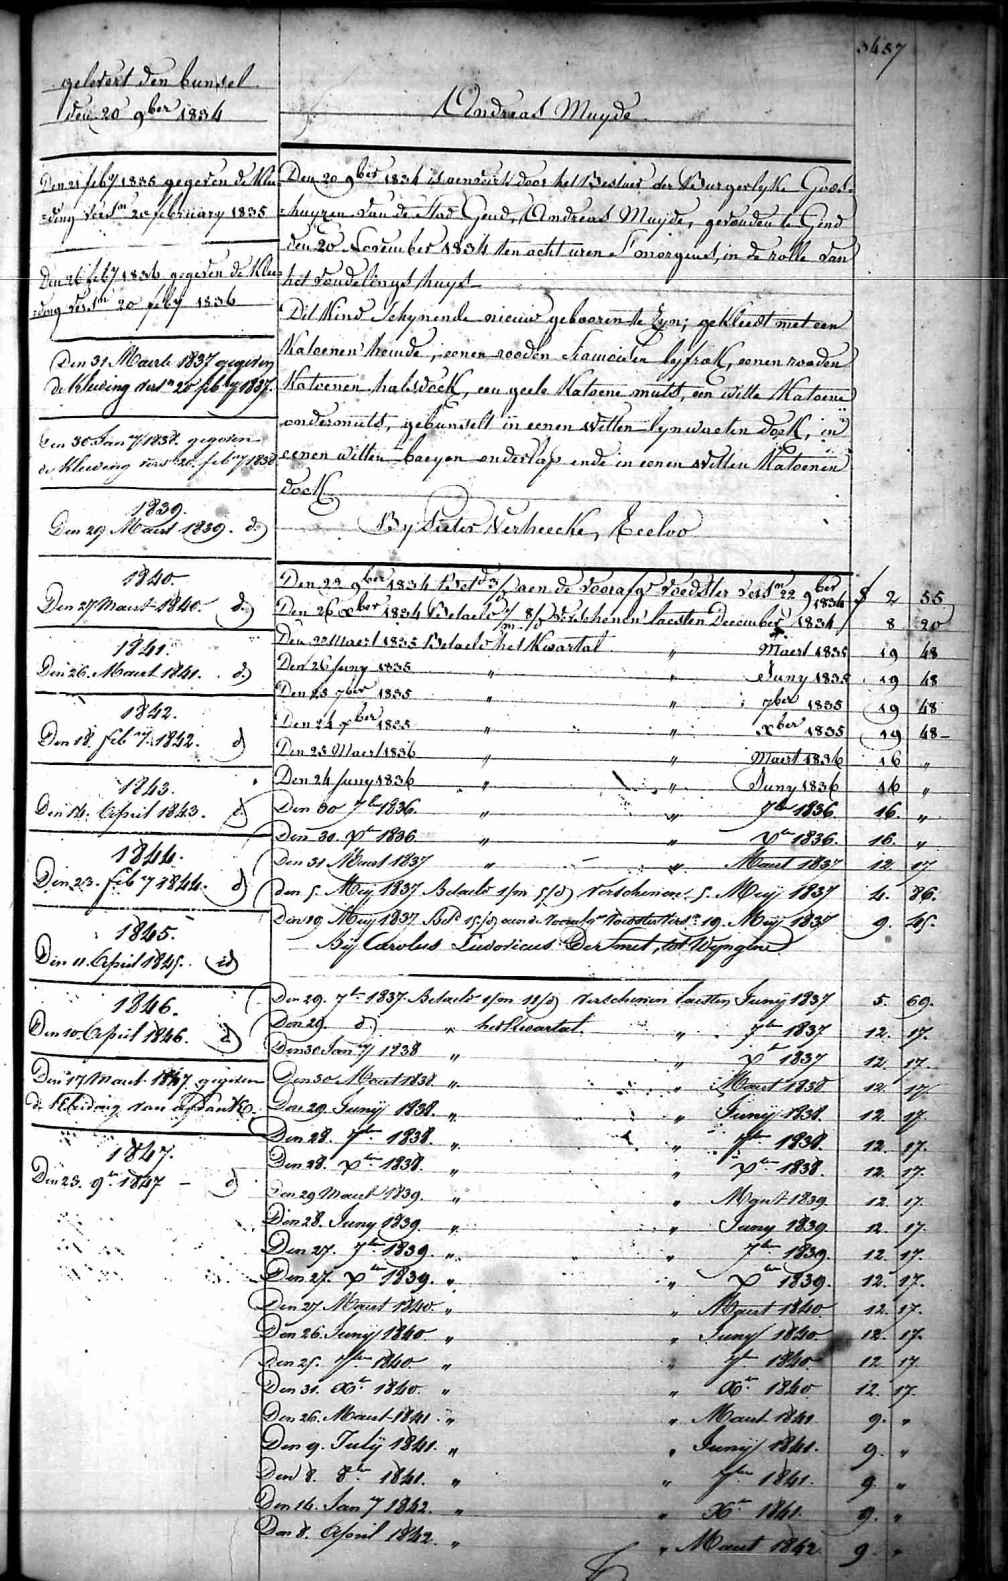 3487
gelevert den bunsel
den 20 9ber 1834
Andreas Muyde
Den 21 feby 1835 gegeven de klee
=ding versn 20 february 1835
Den 26 feby 1836 gegeven de klee
=ding versn 20 feby 1836
Den 31 Maerte 1837 gegeven
de kleeding versn 20 feby 1837.
Den 30 Jany 1838. gegeven
de kleeding vers 20. feby 1838
1839.
Den 29 Maart 1839. do
1840.
Den 27 Maart 1840. do
1841.
Den 26. Maart 1841. do
1842.
Den 18. feby 1842. do
1843.
Den 14. April 1843. do
1844.
Den 23. feby 1844. do
1845.
Den 11. April 1845. do
1846.
Den 10. April 1846. do
Den 17 Maart 1847 gegeven
de kleeding van
1847.
Den 23. 9br 1847 - do
Den 20 9ber 1834 is aenveird door het Bestuer der Burgerlyke Gods=
=huyzen van de Stad Gend, Andreas Muyde, gevonden te Gend
den 20 November 1834 ten acht uren s'morgens, in de rolle van
het vondelings huys
Dit Kind schynende nieuw gebooren te Zyn; gekleedt met een
Katoenen hemde, eenen rooden lyfrok, eenen rooden
Katoenen halsdoek, een geele Katoene muts, een witte Katoene
ondermuts, gebunselt in eenen witten lynwaeten doek, in
eenen witten baeyen onderlap ende in eenen witten Katoenen
doek
By Pieter Verheecke, Eecloo
Den 22 9ber 1834 Bet. aen de voorafge voedster versn 22 9ber 1834 2 55
Den 26 Xber 1834 Betaelt verschenen laesten December 1834 8 20
Den 22 Maert 1835 Betaelt het Kwartal " Maert 1835 19 48
Den 25 Juny 1835 " " Juny 1835 19 48
Den 25 7ber 1835 " " 7ber 1835 19 48
Den 24 Xber 1835 " " Xber 1835 19 48
Den 25 Maert 1836 " " Maert 1836 16 "
Den 24 Juny 1836 " " Juny 1836 16 "
Den 30 7br 1836. " " 7br 1836. 16. "
Den 30. Xbr 1836. " " Xbr 1836. 16. "
Den 31 Maart 1837 " " Maart 1837 12. 17.
Den 5. Mey 1837 Betaelt 1/m 5/d Verschenen 5. Meij 1837 4. 86.
Den 19 Mey 1837 Bet. 15/d aan de voorafge voedster versn 19. Meij 1837 9. 45.
Bij Carolus Ludovicus De Smet, tot Wyngene
Den 29. 7br 1837 Betaelt 1/m 11/d Verschenen laesten Junij 1837 5. 69.
Den 29. do " het Kwartal " 7br 1837 12. 17.
Den 30 Jany 1838 " " Xbr 1837 12. 17.
Den 30 Maart 1838 " " Maart 1838 12. 17.
Den 29. Junij 1838. " " Junij 1838. 12. 17.
Den 28. 7br 1838. " " 7br 1838. 12. 17.
Den 28. Xbr 1838. " " Xbr 1838. 12. 17.
Den 29 Maart 1839. " " Maart 1839 12. 17.
Den 28. Juny 1839. " " Juny 1839. 12. 17.
Den 27. 7br 1839. " " 7br 1839. 12. 17.
Den 27. Xbr 1839. " " Xbr 1839. 12. 17.
Den 27 Maart 1840. " " Maart 1840. 12. 17.
Den 26. Junij 1840. " " Juny 1840. 12. 17.
Den 25. 7br 1840. " " 7br 1840. 12. 17
Den 31. Xbr 1840. " " Xbr 1840. 12. 17.
Den 26. Maart 1841. " " Maart 1841 9. "
Den 9. Julij 1841. " " Junij 1841. 9. "
Den 8. 8br 1841. " " 7br 1841. 9. "
Den 14. Jany 1842. " " Xbr 1841. 9. "
Den 8. April 1842. " " Maart 1842. 9. "